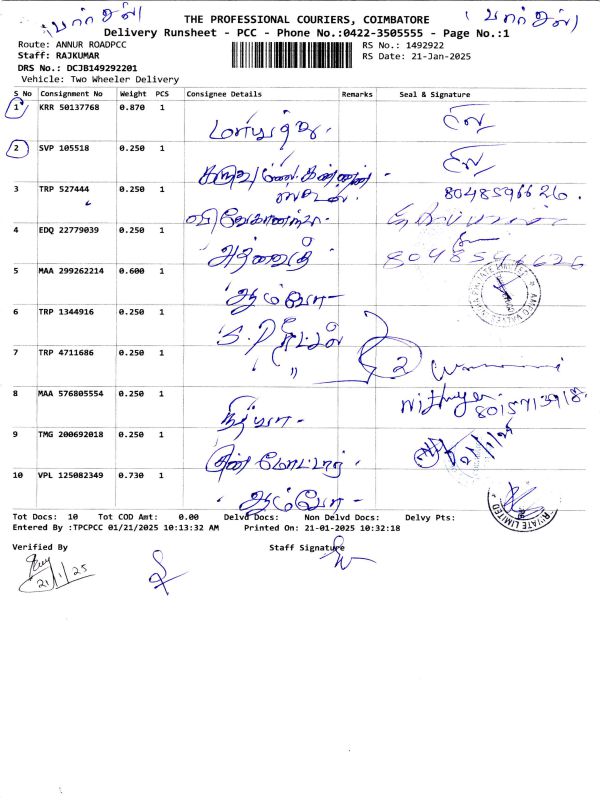 (பார்சல்) THE PROFESSIONAL COURIERS, COIMBATORE (பார்சல்)
Delivery Runsheet - PCC - Phone No.:0422-3505555 - Page No.:1
Route: ANNUR ROADPCC RS No.: 1492922
Staff: RAJKUMAR RS Date: 21-Jan-2025
DRS No.: DCJB149292201
Vehicle: Two Wheeler Delivery
S No Consignment No Weight PCS Consignee Details Remarks Seal & Signature
1 KRR 50137768 0.870 1
2 SVP 105518 0.250 1
3 TRP 527444 0.250 1 8048596626.
4 EDQ 22779039 0.250 1 8048596626
5 MAA 299262214 0.600 1 ஆம்போ
6 TRP 1344916 0.250 1
7 TRP 4711686 0.250 1 " 2
8 MAA 576805554 0.250 1 நித்யா
9 TMG 200692018 0.250 1 மோட்டார் 21/1/25
10 VPL 125082349 0.730 1 ஆம்போ
Tot Docs: 10 Tot COD Amt: 0.00 Delvd Docs: Non Delvd Docs: Delvy Pts:
Entered By :TPCPCC 01/21/2025 10:13:32 AM Printed On: 21-01-2025 10:32:18
Verified By Staff Signature
21/1/25